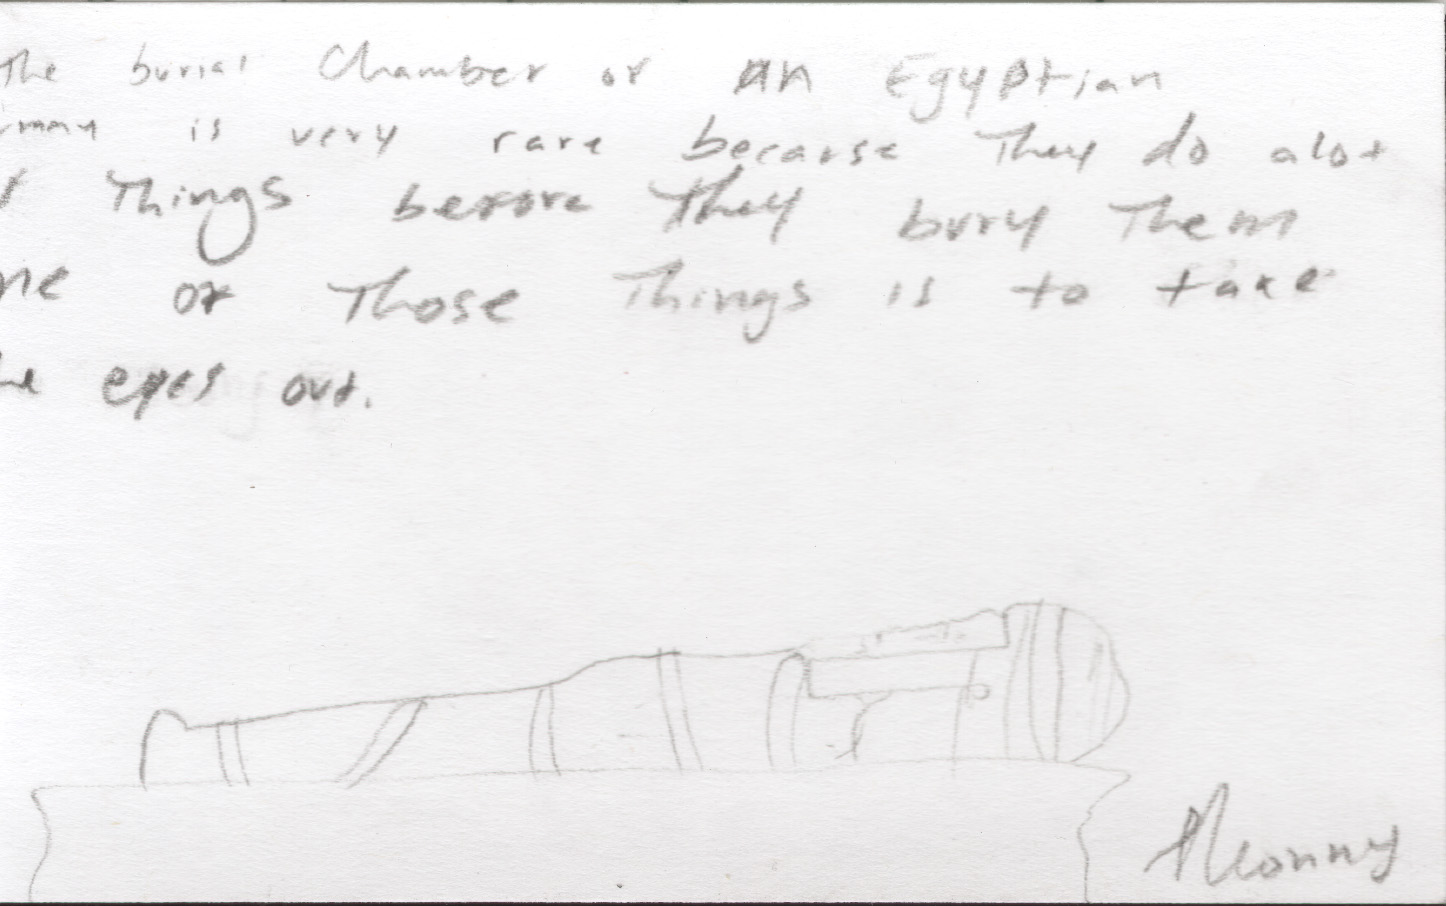 The burial Chamber of an Egyptian
is very rare because They do alot
Things before They bury Them
of Those Things is to take
eyes out.